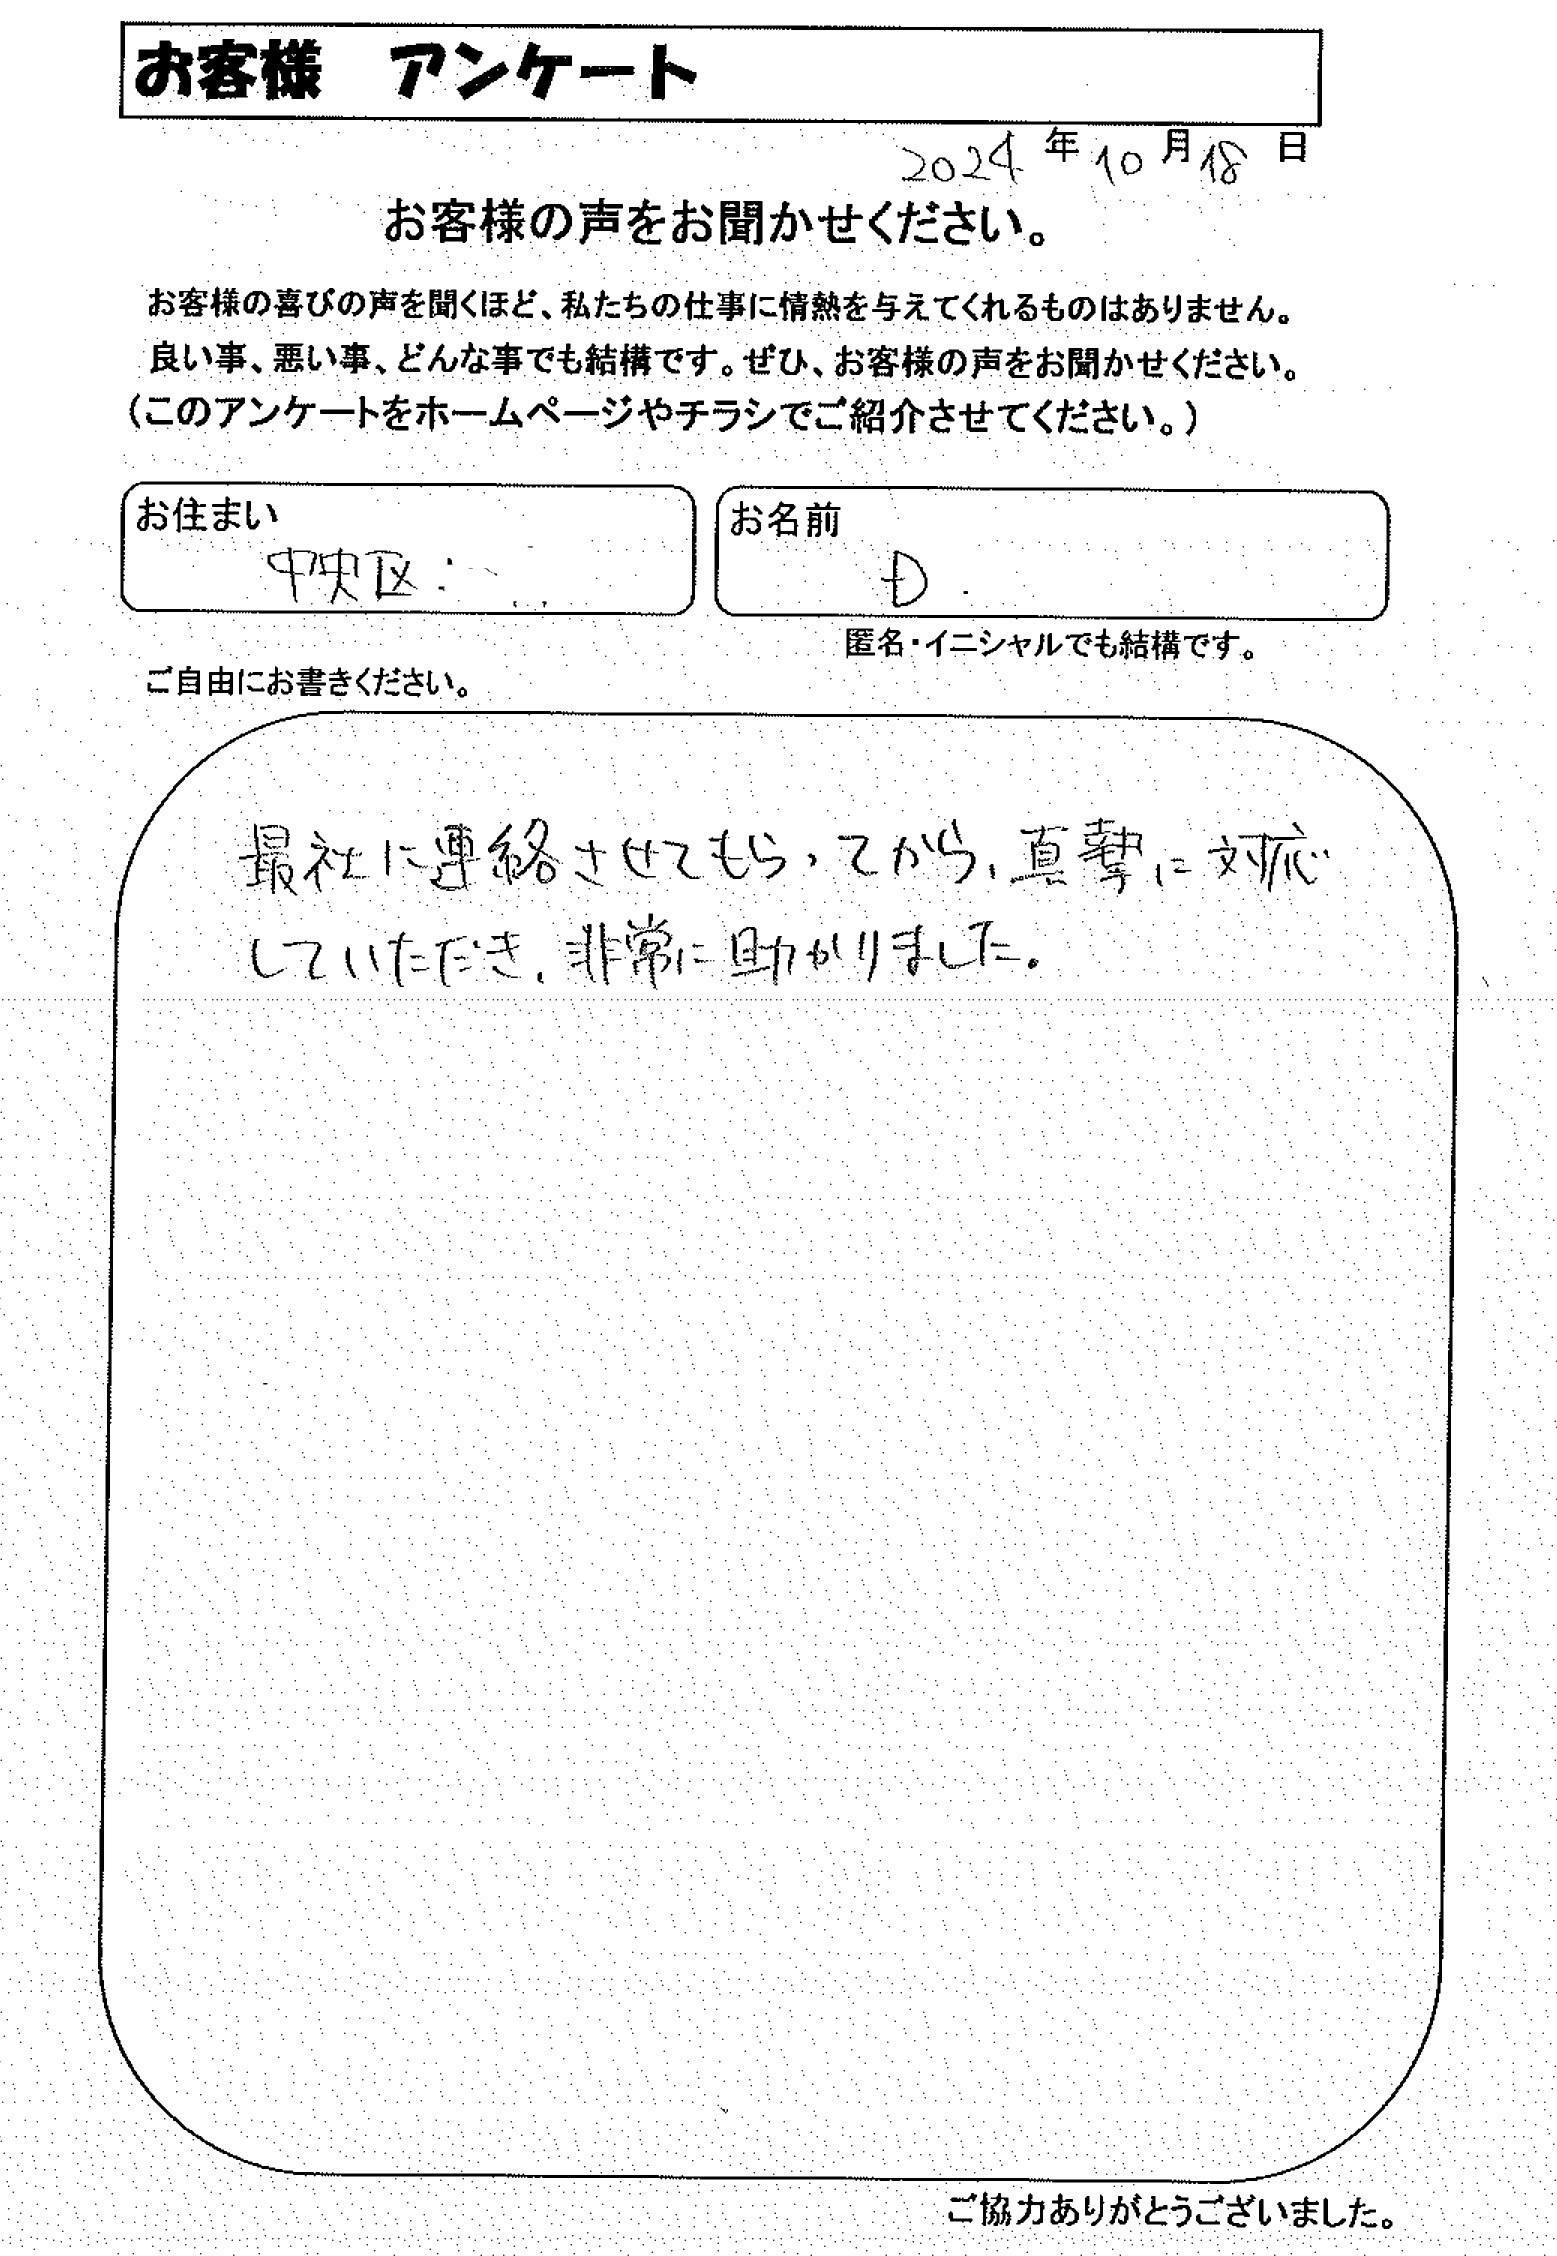 お客様　アンケート
2024年10月18日
お客様の声をお聞かせください。
お客様の喜びの声を聞くほど、私たちの仕事に情熱を与えてくれるものはありません。
良い事、悪い事、どんな事でも結構です。ぜひ、お客様の声をお聞かせください。
（このアンケートをホームページやチラシでご紹介させてください。）
お住まい
中央区
お名前
D
匿名・イニシャルでも結構です。
ご自由にお書きください。
最社に連絡させてもらってから、真摯に対応
していただき、非常に助かりました。
ご協力ありがとうございました。